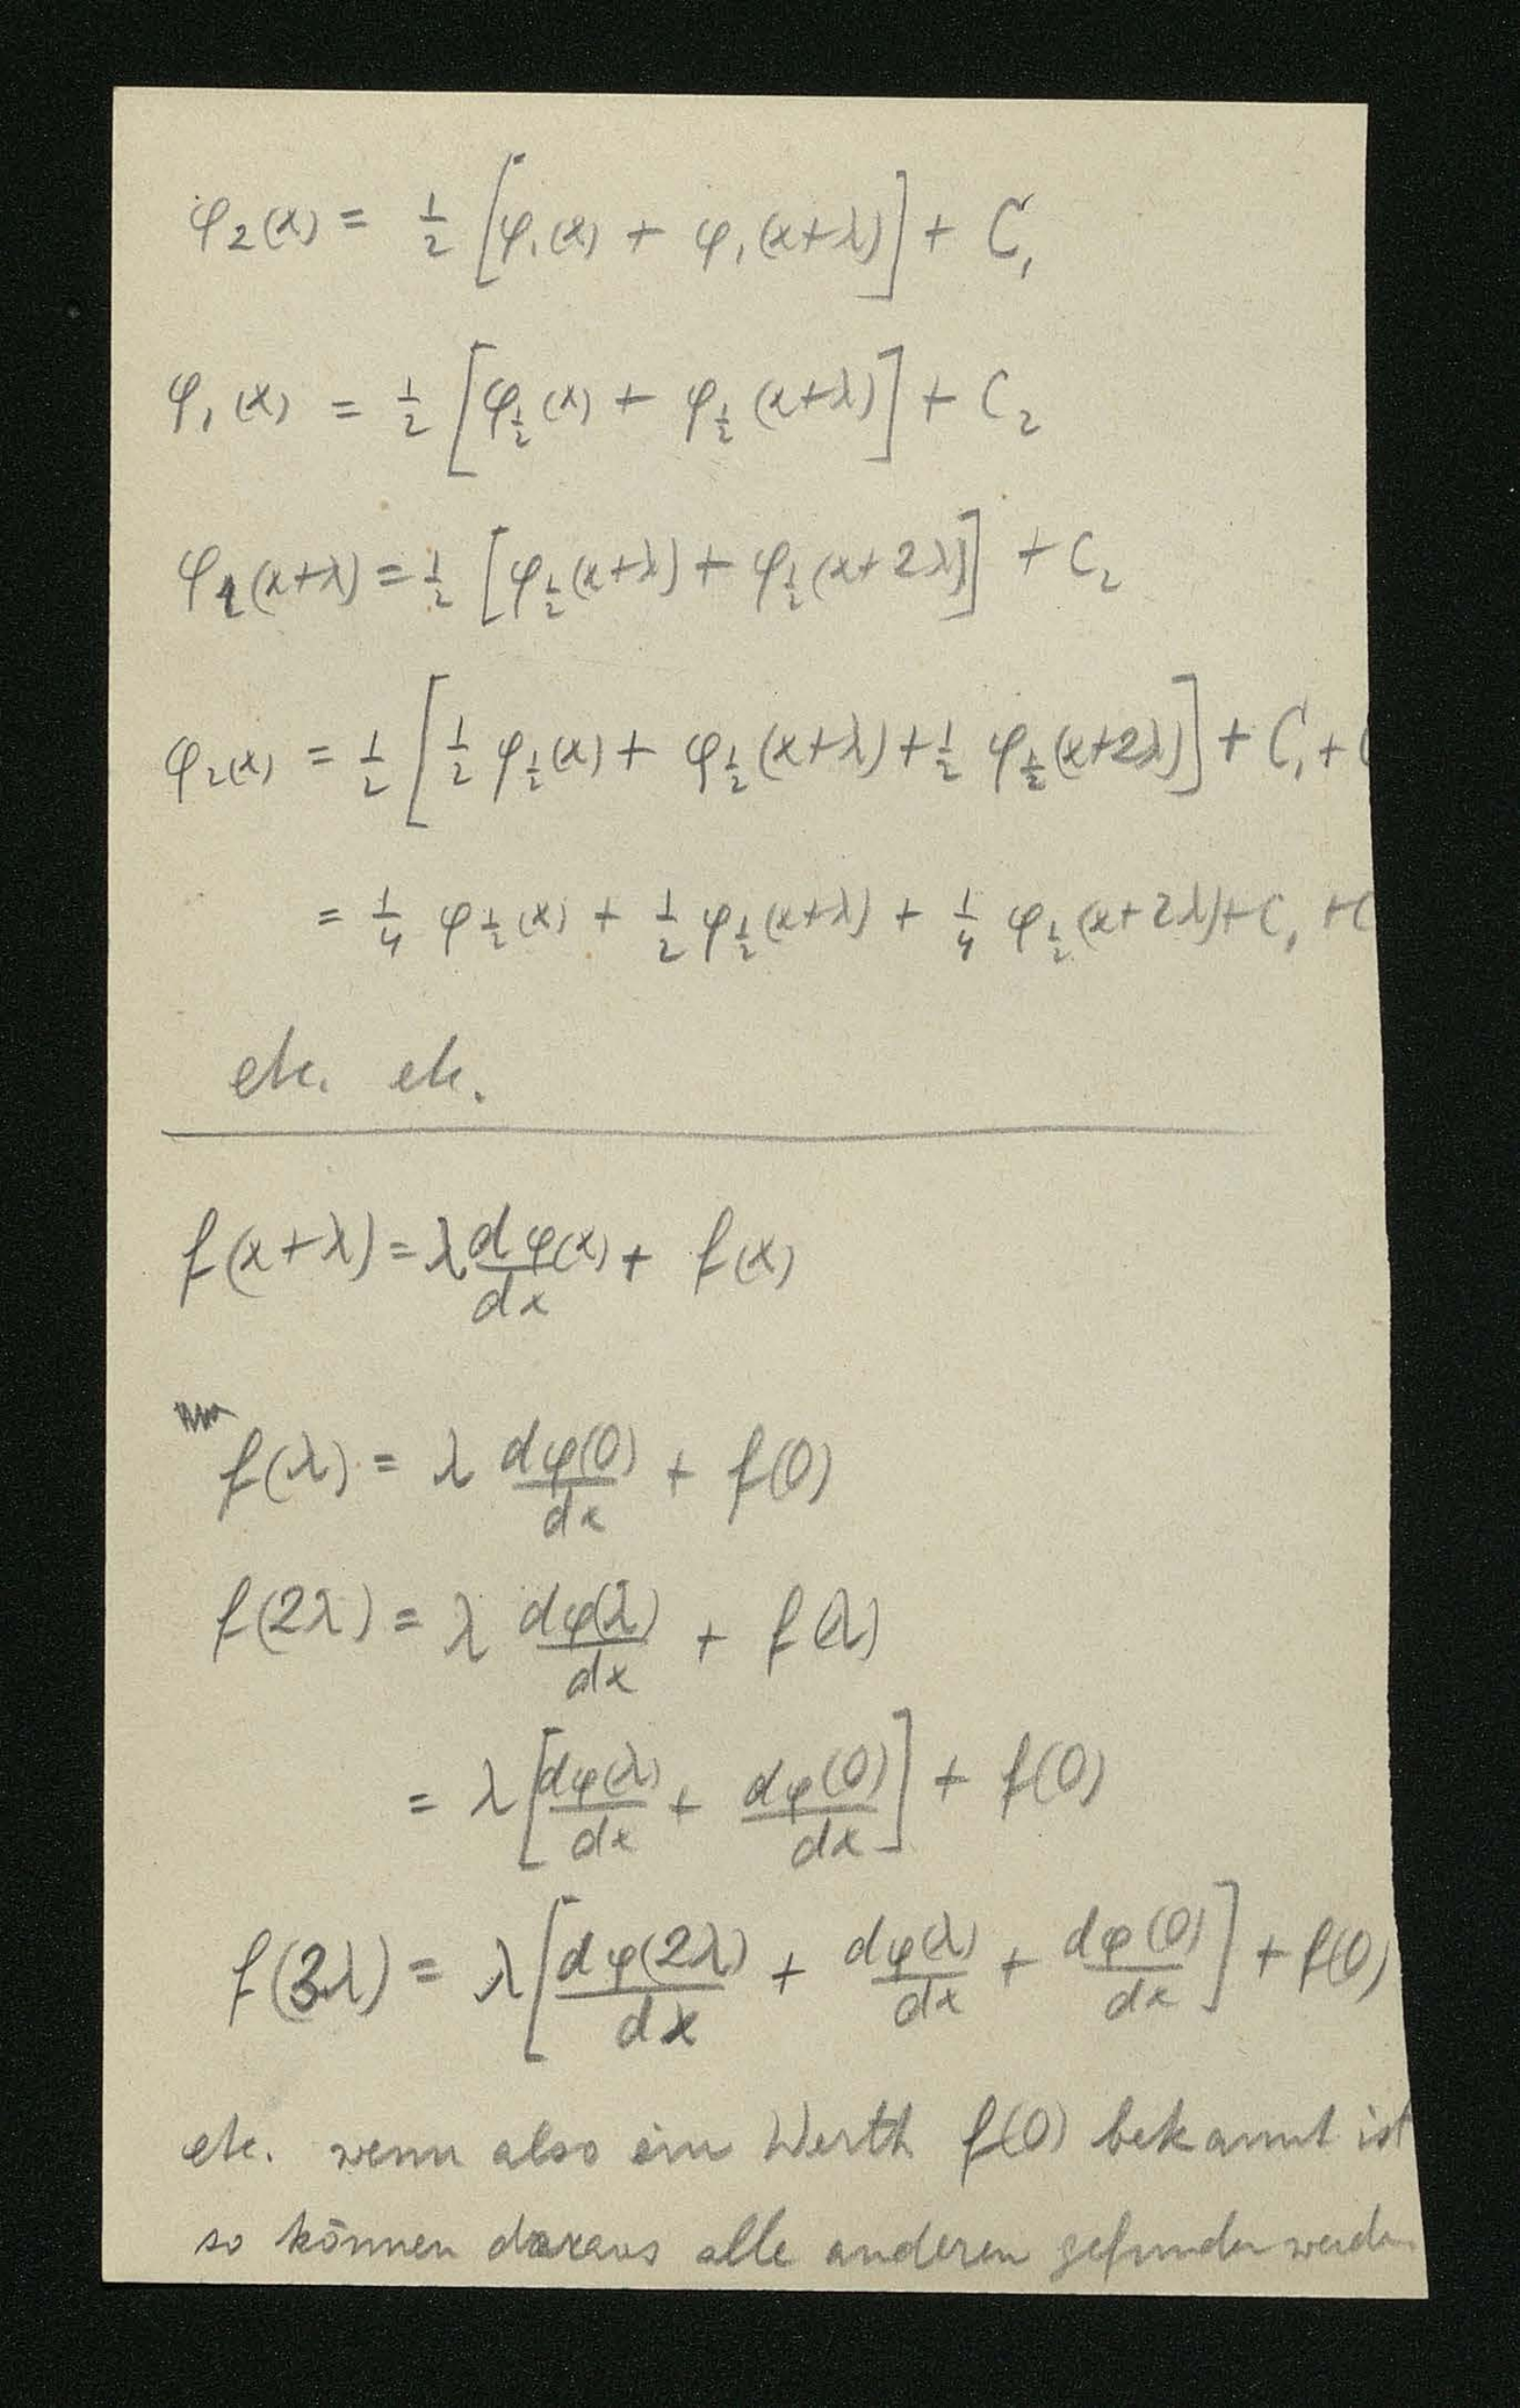 φ₂(x) = ½ [φ₁(x) + φ₁(x+λ)] + C₁
φ₁(x) = ½ [φ_½(x) + φ_½(x+λ)] + C₂
φ₁(x+λ) = ½ [φ_½(x+λ) + φ_½(x+2λ)] + C₂
φ₂(x) = ½ [½ φ_½(x) + φ_½(x+λ) + ½ φ_½(x+2λ)] + C₁ + C
= ¼ φ_½(x) + ½ φ_½(x+λ) + ¼ φ_½(x+2λ) + C₁ + C
etc. etc.
f(x+λ) = λ dφ(x)/dx + f(x)
f(λ) = λ dφ(0)/dx + f(0)
f(2λ) = λ dφ(λ)/dx + f(λ)
= λ [dφ(λ)/dx + dφ(0)/dx] + f(0)
f(3λ) = λ [dφ(2λ)/dx + dφ(λ)/dx + dφ(0)/dx] + f(0)
etc. wenn also ein Werth f(0) bekannt ist
so können daraus alle anderen gefunden werden